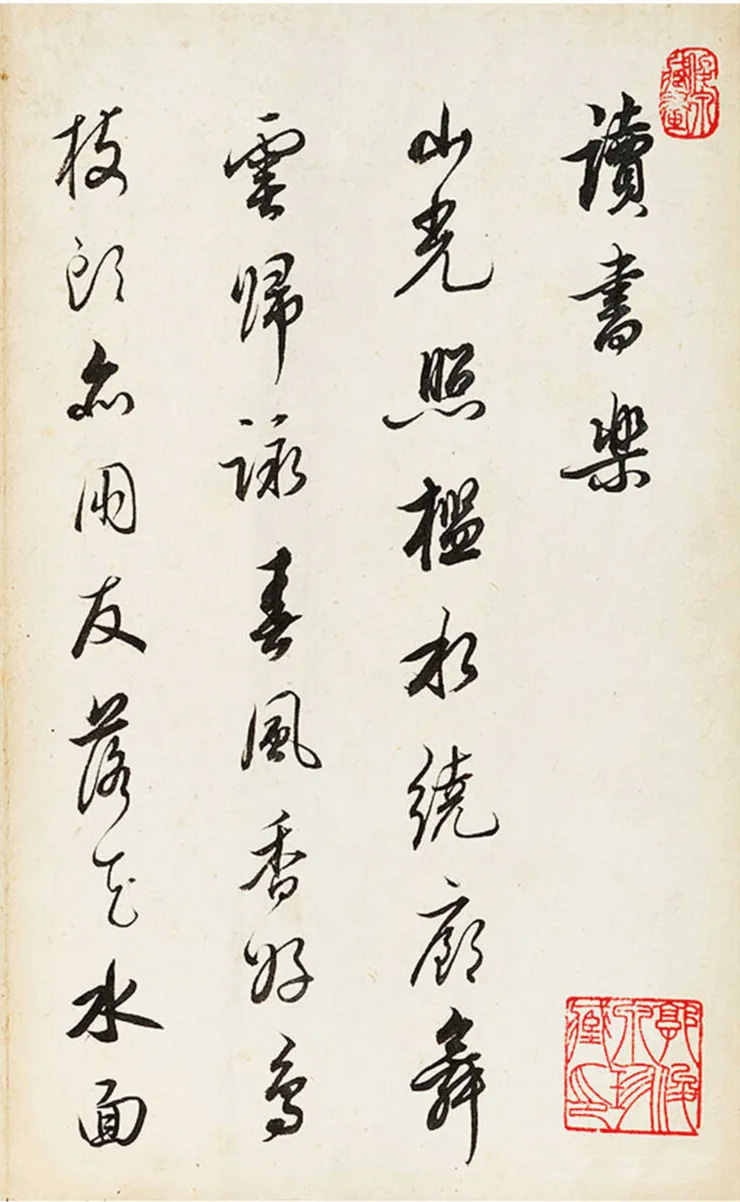 讀書樂
山光照檻水繞廊舞
雩歸詠春風香好鳥
枝頭亦朋友落花水面